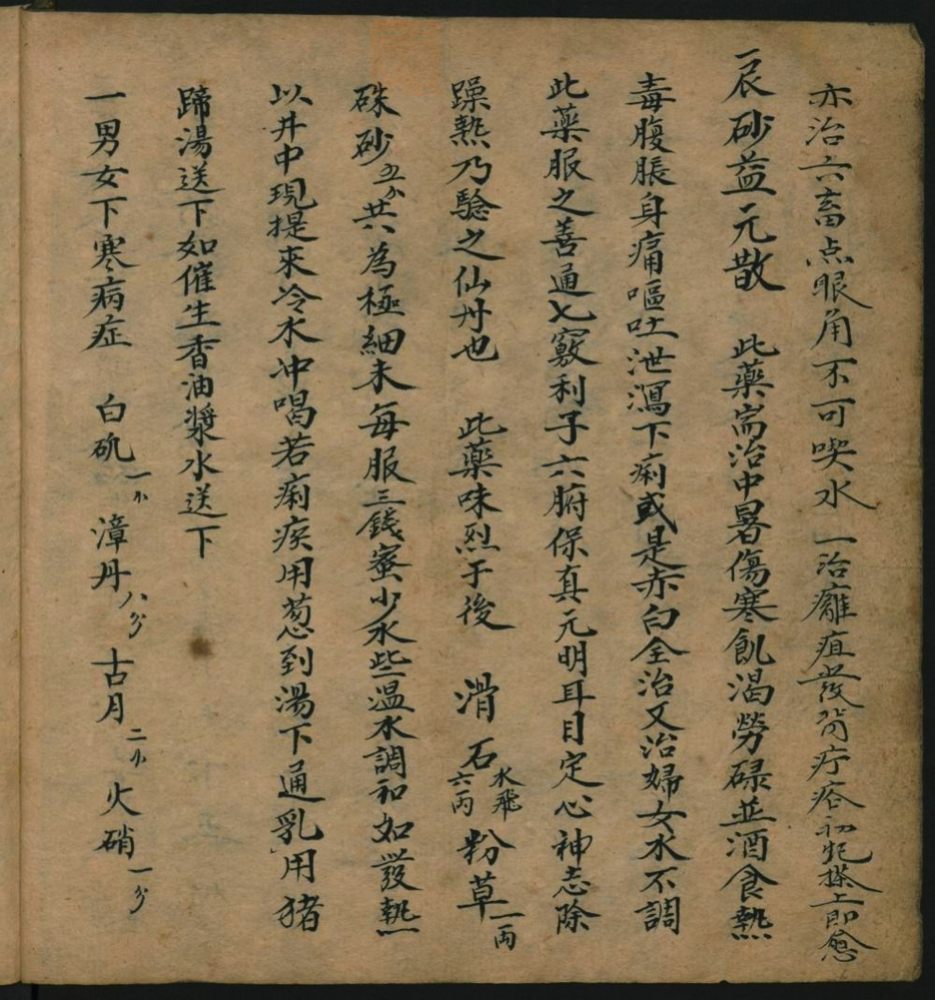 亦治六畜点眼角不可喫水 一治癰疽發背疔疮初起搽上即愈
一辰砂益元散 此藥耑治中暑傷寒飢渴勞碌並酒食熱
毒腹脹身痛嘔吐泄瀉下痢或是赤白全治又治婦女水不調
此藥服之善通七竅利子六腑保真元明耳目定心神志除
躁熱乃驗之仙丹也 此藥味烈于後 滑石水飛六兩 粉草一兩
硃砂五分 共為極細末每服三錢蜜少水些温水調和如發熱
以井中現提來冷水冲喝若痢疾用葱到湯下通乳用猪
蹄湯送下如催生香油漿水送下
一男女下寒病症 白矾一小 漳丹八分 古月二小 火硝一分